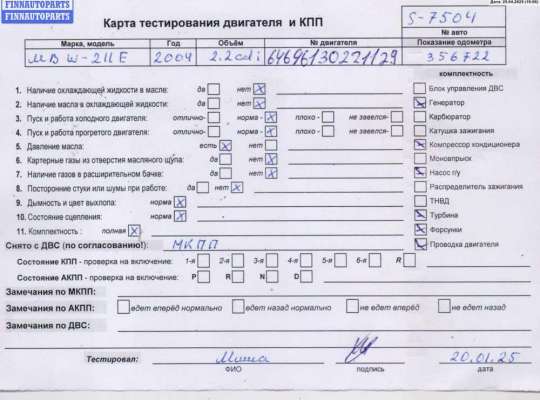 FINNAUTOPARTS
FINNAUTOPARTS
Карта тестирования двигателя и КПП
S-7504
№ авто
Марка, модель Год Объём № двигателя Показание одометра
MB W-211E 2004 2.2cdi 64696130221129 356722
комплектность
1. Наличие охлаждающей жидкости в масле: да нет X
Блок управления ДВС
2. Наличие масла в охлаждающей жидкости: да нет X
Генератор
3. Пуск и работа холодного двигателя: отлично- норма - X плохо - не завелся-
Карбюратор
4. Пуск и работа прогретого двигателя: отлично- норма - X плохо - не завелся-
Катушка зажигания
5. Давление масла: есть X нет
Компрессор кондиционера
6. Картерные газы из отверстия масляного щупа: да нет X
Моновпрыск
7. Наличие газов в расширительном бачке: да нет X
Насос г/у
8. Посторонние стуки или шумы при работе: да нет X
Распределитель зажигания
9. Дымность и цвет выхлопа: норма X
ТНВД
10. Состояние сцепления: норма X
Турбина
11. Комплектность : полная X
Форсунки
Снято с ДВС (по согласованию!): МКПП
Проводка двигателя
Состояние КПП - проверка на включение: 1-я 2-я 3-я 4-я 5-я 6-я R
Состояние АКПП - проверка на включение: P R N D
Замечания по МКПП:
Замечания по АКПП: едет вперёд нормально едет назад нормально не едет вперёд не едет назад
Замечания по ДВС:
Тестировал: Миша 20.01.25
ФИО подпись дата